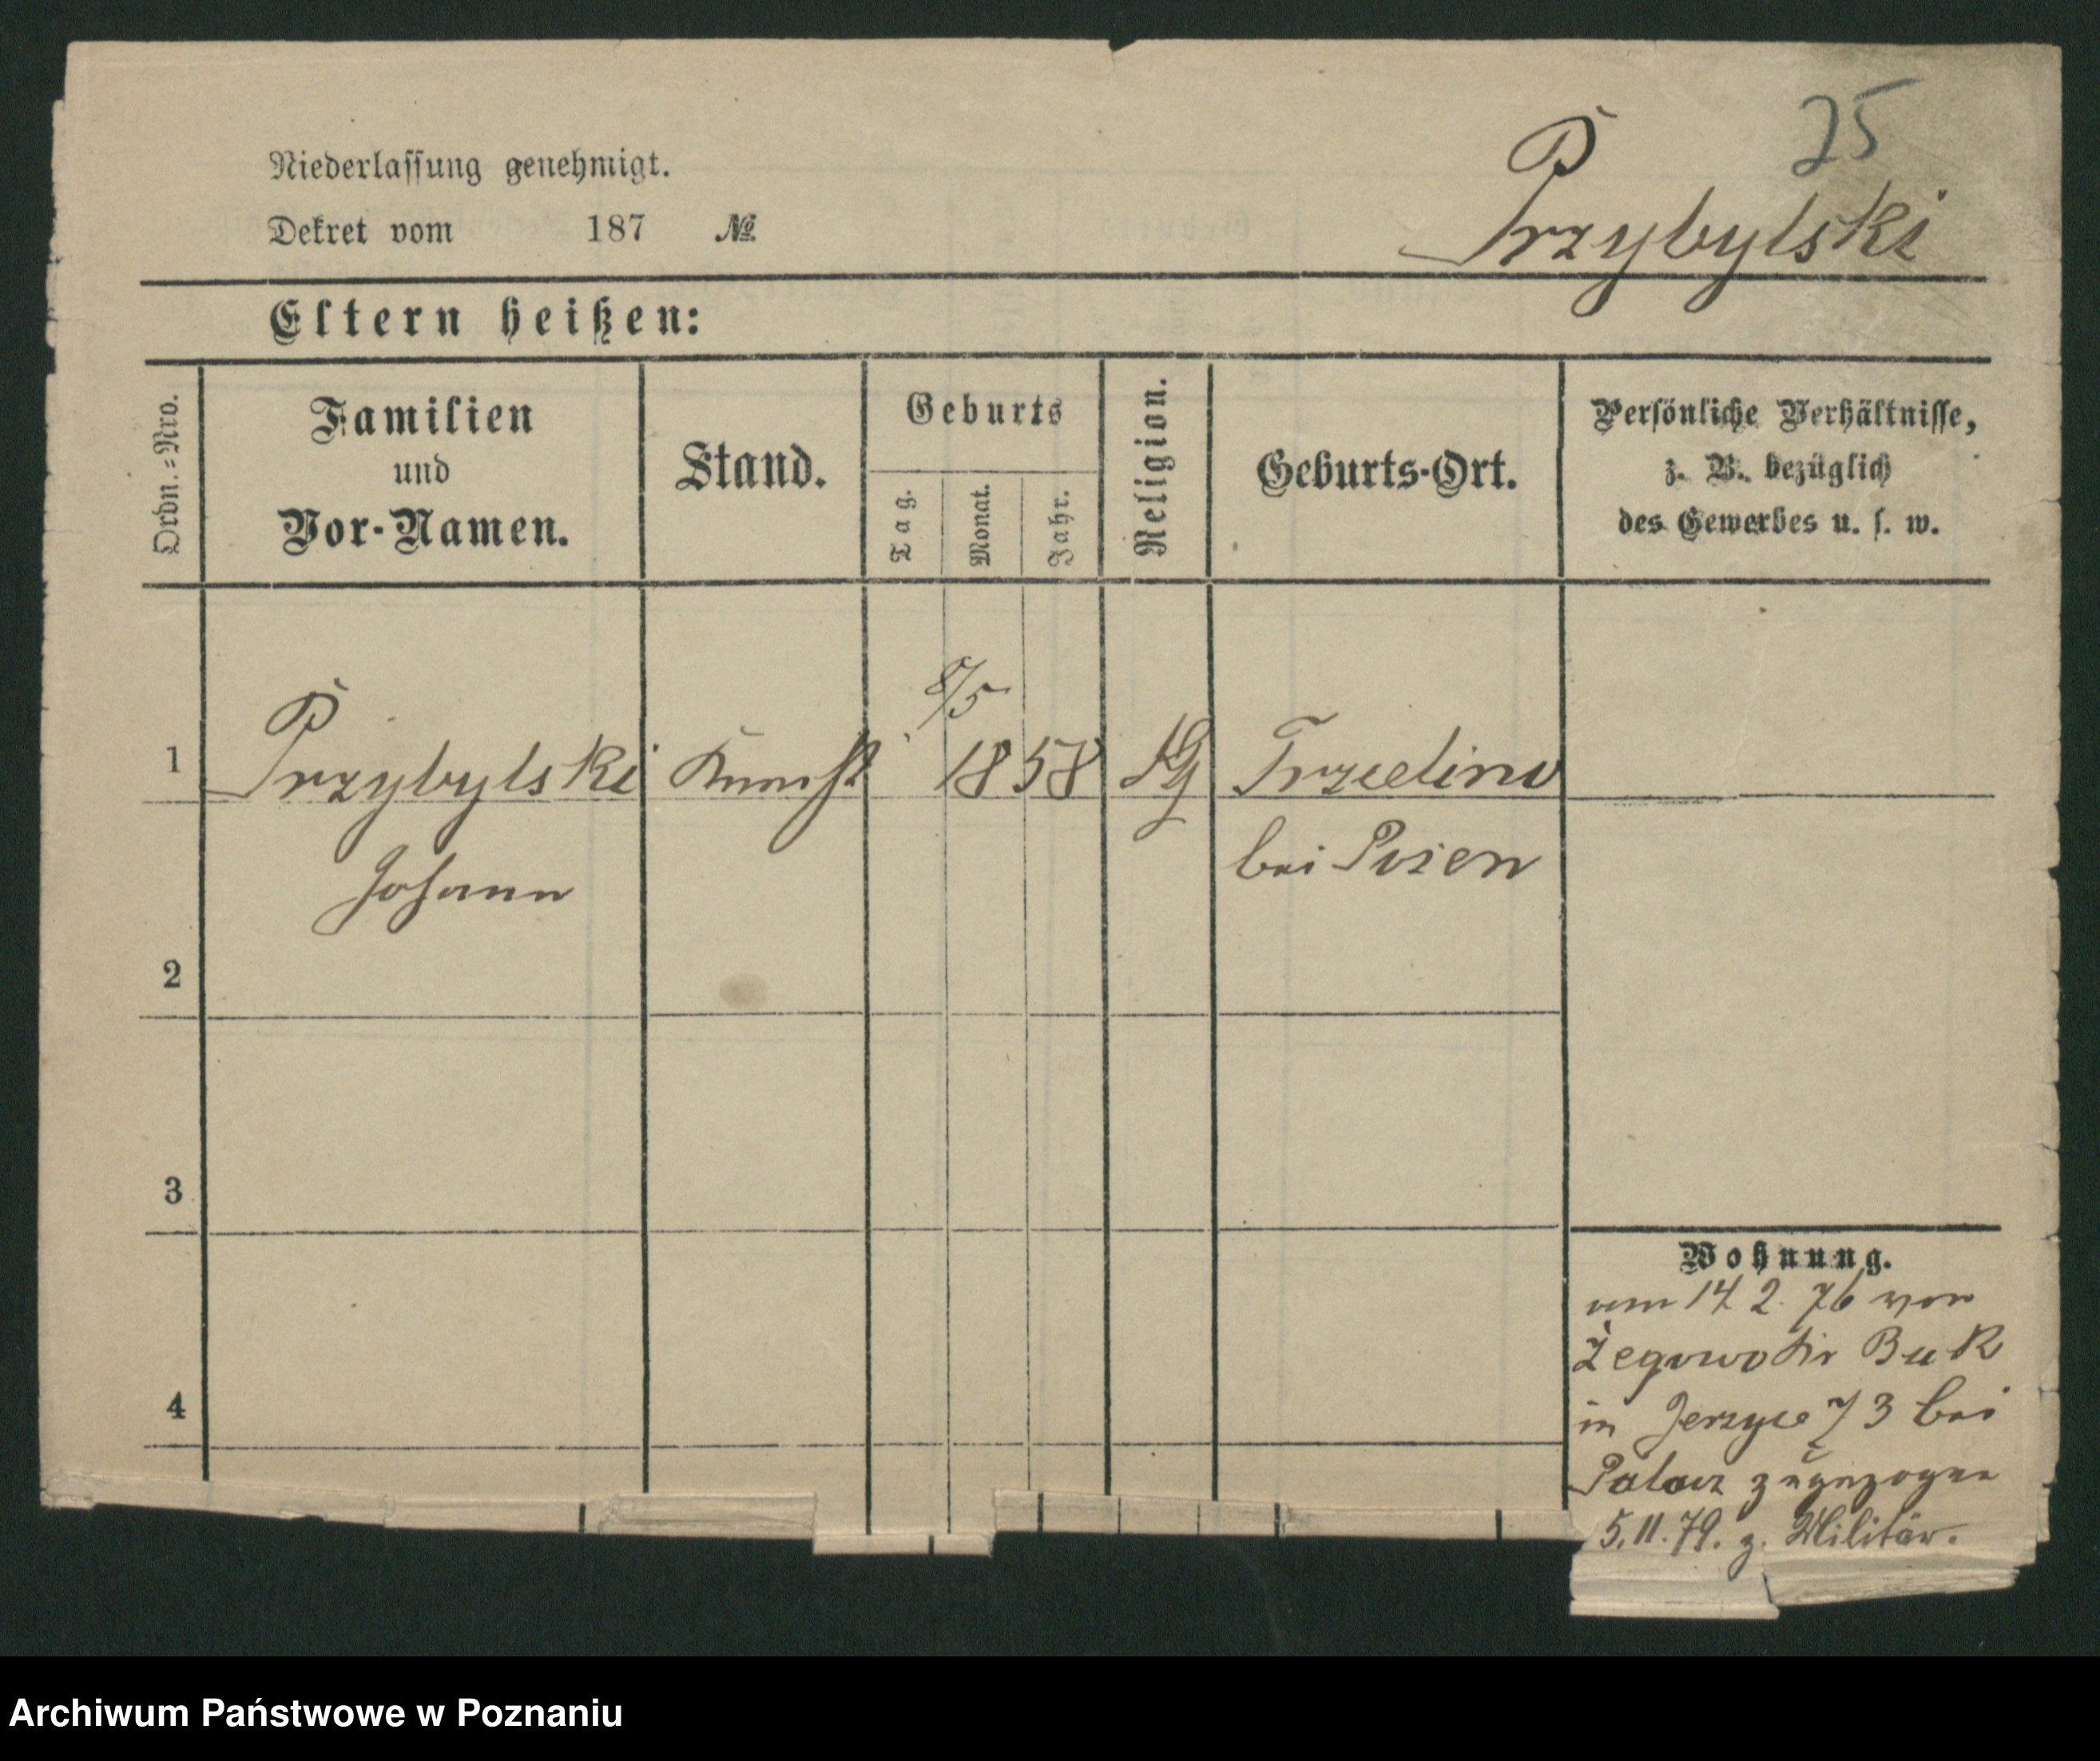 25
Przybylski
Niederlassung genehmigt.
Dekret vom 187 №
Eltern heißen:
Ordn.=Nro.
Familien
und
Vor-Namen.
Stand.
Geburts
Tag.
Monat.
Jahr.
Religion.
Geburts-Ort.
Persönliche Verhältnisse,
z. B. bezüglich
des Gewerbes u. s. w.
8/5
1 Przybylski 1858 Trzcelino
Johann bei Posen
2
3
4
Wohnung.
am 14 2. 76 von
Żegowo Kr Buk
in Jerzyce 73 bei
Palacz zugezogen
5.11.79. z. Militär.
Archiwum Państwowe w Poznaniu